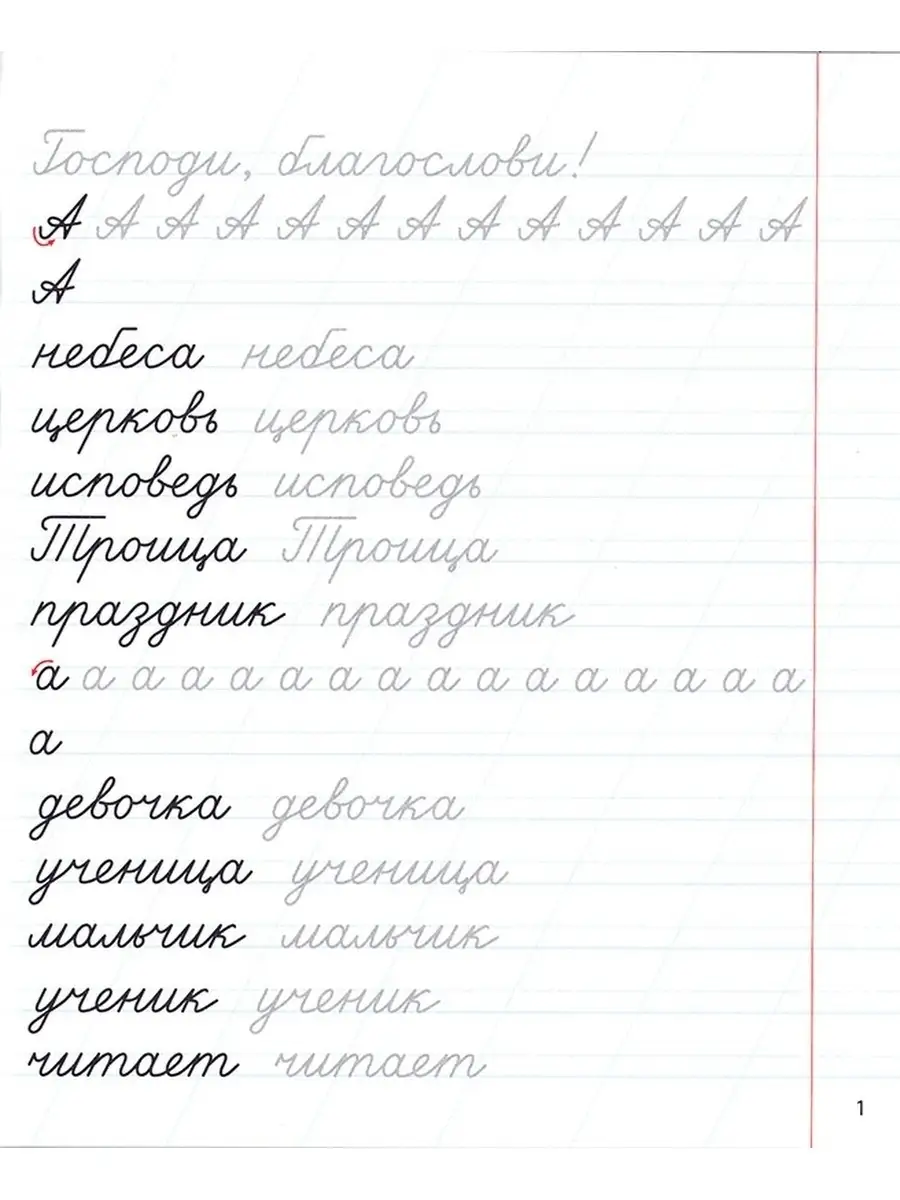 Господи, благослови!
А А А А А А А А А А А А А
А
небеса небеса
церковь церковь
исповедь исповедь
Троица Троица
праздник праздник
а а а а а а а а а а а а а а а а
а
девочка девочка
ученица ученица
мальчик мальчик
ученик ученик
читает читает
1